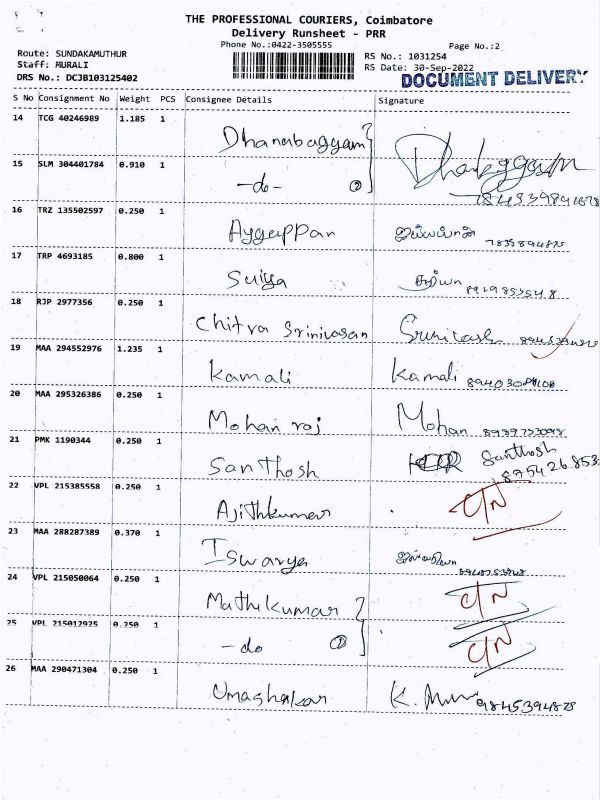 THE PROFESSIONAL COURIERS, Coimbatore
Delivery Runsheet - PRR
Phone No.:0422-3505555
Page No.:2
Route: SUNDAKAMUTHUR
Staff: MURALI
DRS No.: DCJB103125402
RS No.: 1031254
RS Date: 30-Sep-2022
DOCUMENT DELIVERY
S No Consignment No Weight PCS Consignee Details Signature
14 TCG 40246989 1.185 1 Dhanabagyam
15 SLM 304401784 0.910 1 -do- ②
16 TRZ 135502597 0.250 1 Ayyappan ஐயப்பன்
17 TRP 4693185 0.800 1 Suriya சூர்யா
18 RJP 2977356 0.250 1 Chitra Srinivasan
19 MAA 294552976 1.235 1 Kamali Kamali
20 MAA 295326386 0.250 1 Mohan raj Mohan
21 PMK 1190344 0.250 1 Santhosh Santhosh
875426853
22 VPL 215385558 0.250 1 Ajithkumar C/N
23 MAA 288287389 0.370 1 Iswarya
24 VPL 215050064 0.250 1 Mathikumar C/N
25 VPL 215012925 0.250 1 -do ② C/N
26 MAA 290471304 0.250 1 Umashankar K.